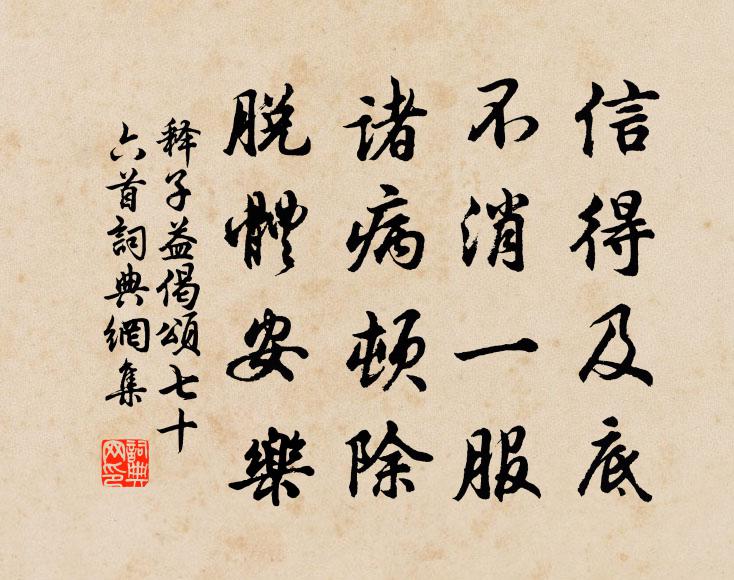 信得及底
不消一服
诸病顿除
脱體安樂
释子益偈頌七十
六首詞典網集
詞典网印